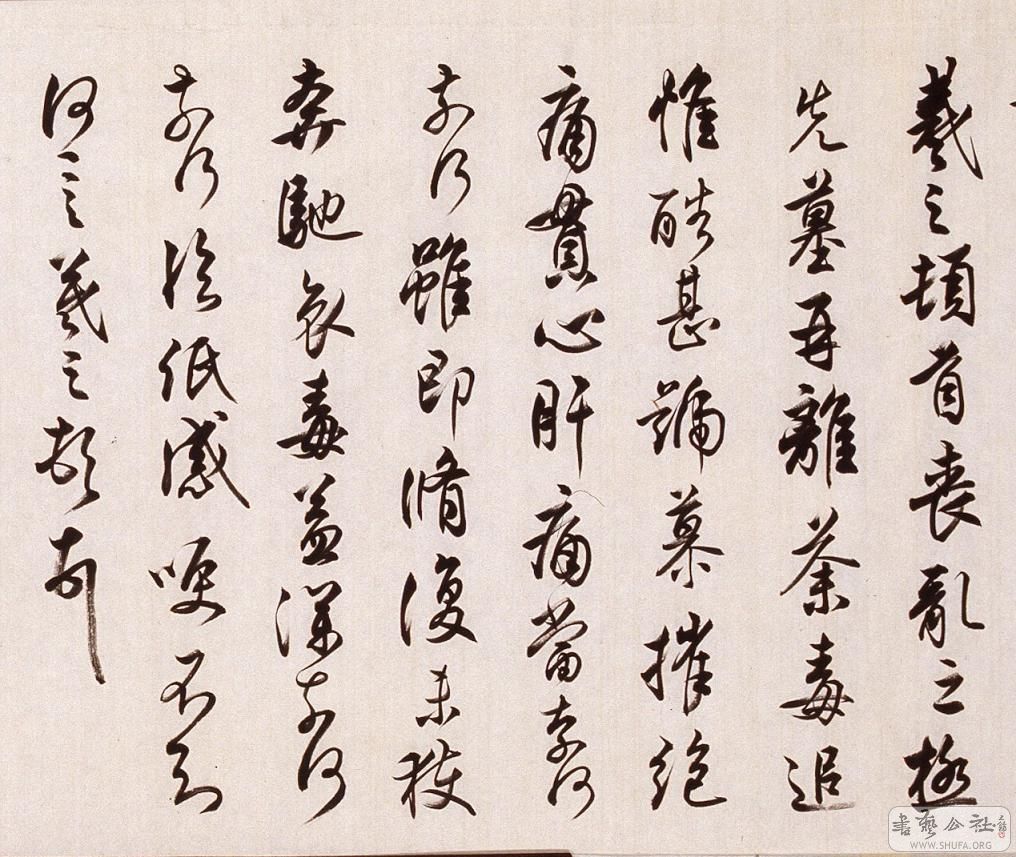 羲之頓首喪亂之極
先墓再離荼毒追
惟酷甚號慕摧絕
痛貫心肝痛當奈何
奈何雖即脩復未獲
奔馳哀毒益深奈何
奈何臨紙感哽不知
何言羲之頓首
書藝公社
WWW.SHUFA.ORG